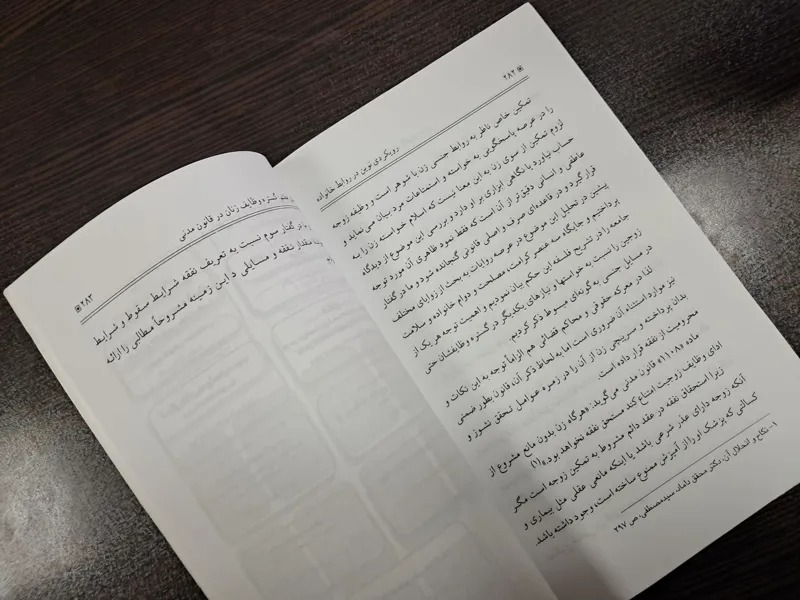 ۲۸۲
رویکردی نوین در روابط خانواده
تمکین خاص ناظر به روابط جنسی زن با شوهر است و وظیفه زوجه
را در عرصه پاسخگویی به خواسته و استمتاعات مرد بیان می نماید و
لزوم تمکین از سوی زن به این معنا نیست که اسلام خواسته زن را به
حساب نیاورد یا نگاهی ابزاری بر او دارد و بررسی این موضوع از دیدگاه
عاطفی و انسانی دقیق تر از آن است که فقط نمود ظاهری آن مورد توجه
قرار گیرد و در قاعده‌ای صرف و اصلی قانونی گنجانده شود و ما در گفتار
پیشین در تحلیل این موضوع در عرصه روایات به بحث از زوایای مختلف
پرداختیم و جایگاه سه عنصر کرامت، مصلحت و دوام خانواده و سلامت
جامعه را در تشریح فلسفه این حکم بیان نمودیم و اهمیت توجه هر یک از
زوجین را نسبت به خواستها و نیازهای یکدیگر در گستره وظایفشان حتی
در مسایل جنسی به گونه‌ای مبسوط ذکر کردیم.
لذا در معرکه حقوقی و محاکم قضائی هم الزاماً توجه به این نکات و
نیز موارد استثناء آن ضروری است اما به لحاظ ذکر آن، قانون بطور ضمنی
بدان پرداخته و سرپیچی زن از آن را در زمره عوامل تحقق نشوز و
محرومیت از نفقه قرار داده است.
ماده «۱۱۰۸» قانون مدنی می‌گوید: «هرگاه زن بدون مانع مشروع از
ادای وظایف زوجیت امتناع کند مستحق نفقه نخواهد بود»(۱)
زیرا استحقاق نفقه در عقد دائم مشروط به تمکین زوجه است مگر
آنکه زوجه دارای عذر شرعی باشد یا اینکه مانعی عقلی مثل بیماری و
کسالتی که پزشک او را از آمیزش ممنوع ساخته است، وجود داشته باشد.
۱- نکاح و انحلال آن، دکتر محقق داماد، سید مصطفی، ص ۲۹۷
گستره وظایف زنان در قانون مدنی
۲۸۳
در گفتار سوم نسبت به تعریف نفقه شرایط سقوط و شرایط
مقدار نفقه و مسایلی در این زمینه مشروحاً مطالبی را ارائه